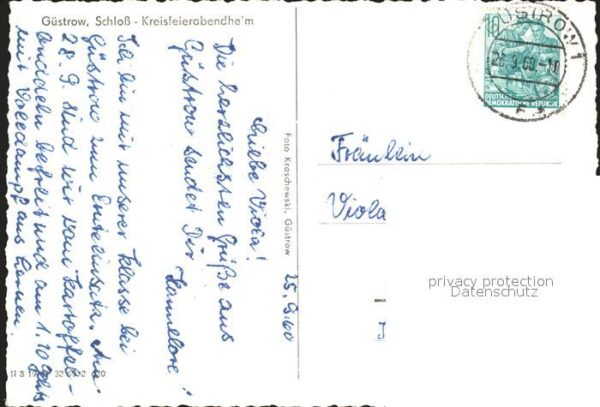 Güstrow, Schloß - Kreisfeierabendheim
25. 9. 60
Liebe Viola!
Die herzlichsten Grüße aus
Güstrow sendet Dir
Hannelore
Ich bin mit unserer Klasse bei
Güstrow zum Ernteeinsatz. Am
28. 9. sind wir vom Kartoffel-
buddeln befreit und am 1. 10. gehts
mit Volldampf ans Lernen.
Foto Kraschewski, Güstrow
GÜSTROW 1
26.9.60.-10
10
DEUTSCHE
DEMOKRATISCHE REPUBLIK
Fräulein
Viola
privacy protection
Datenschutz